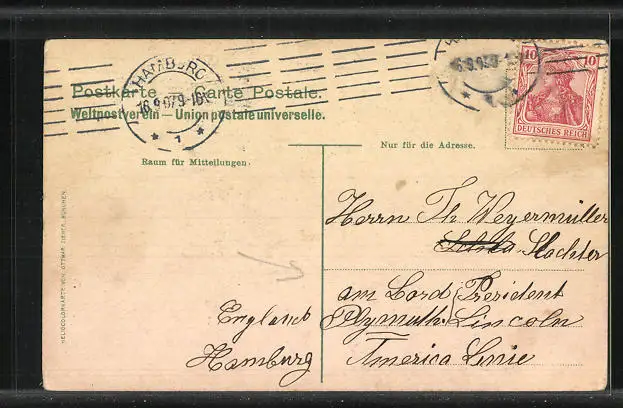 HAMBURG
16.9.07.9-10
1
10 10
DEUTSCHES REICH
Postkarte — Carte Postale.
Weltpostverein — Union postale universelle.
Raum für Mitteilungen.
Nur für die Adresse.
Herrn Th. Weyermüller
Slachter
am Bord President
England Plymuth. Lincoln
Hamburg America Linie
HELIOCOLORKARTE VON OTTMAR ZIEHER, MÜNCHEN